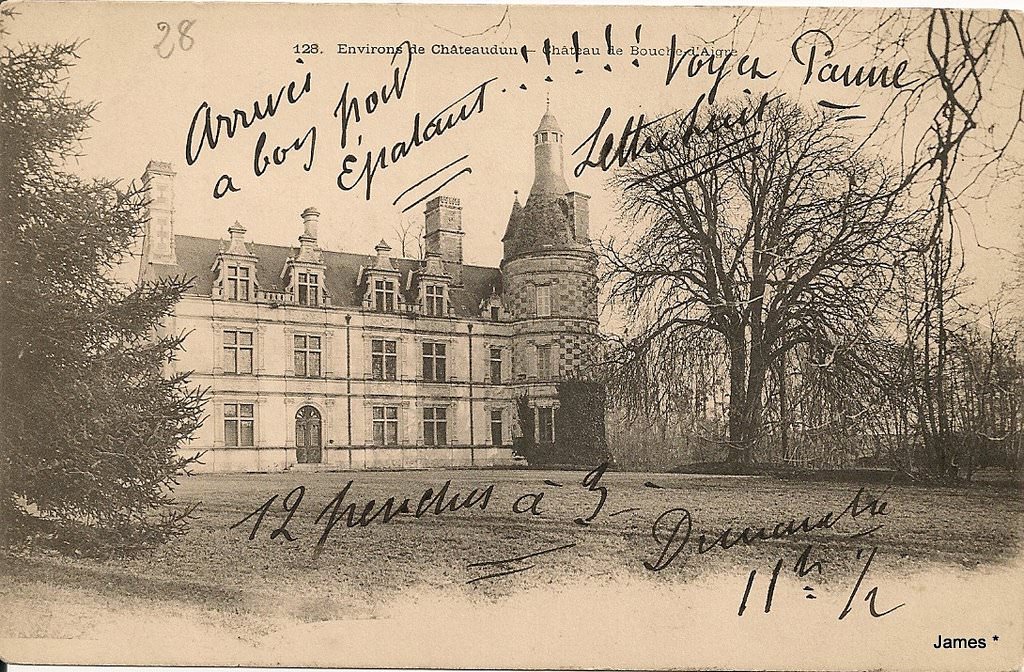 28
128. Environs de Châteaudun - Château de Bouche-d'Aigre
Arrivés
a bon port
Épatant..!!!!!
Voyez Panne
Lettre suit
12 perdus à 3 -
Dimanche
11h 1/2
James *